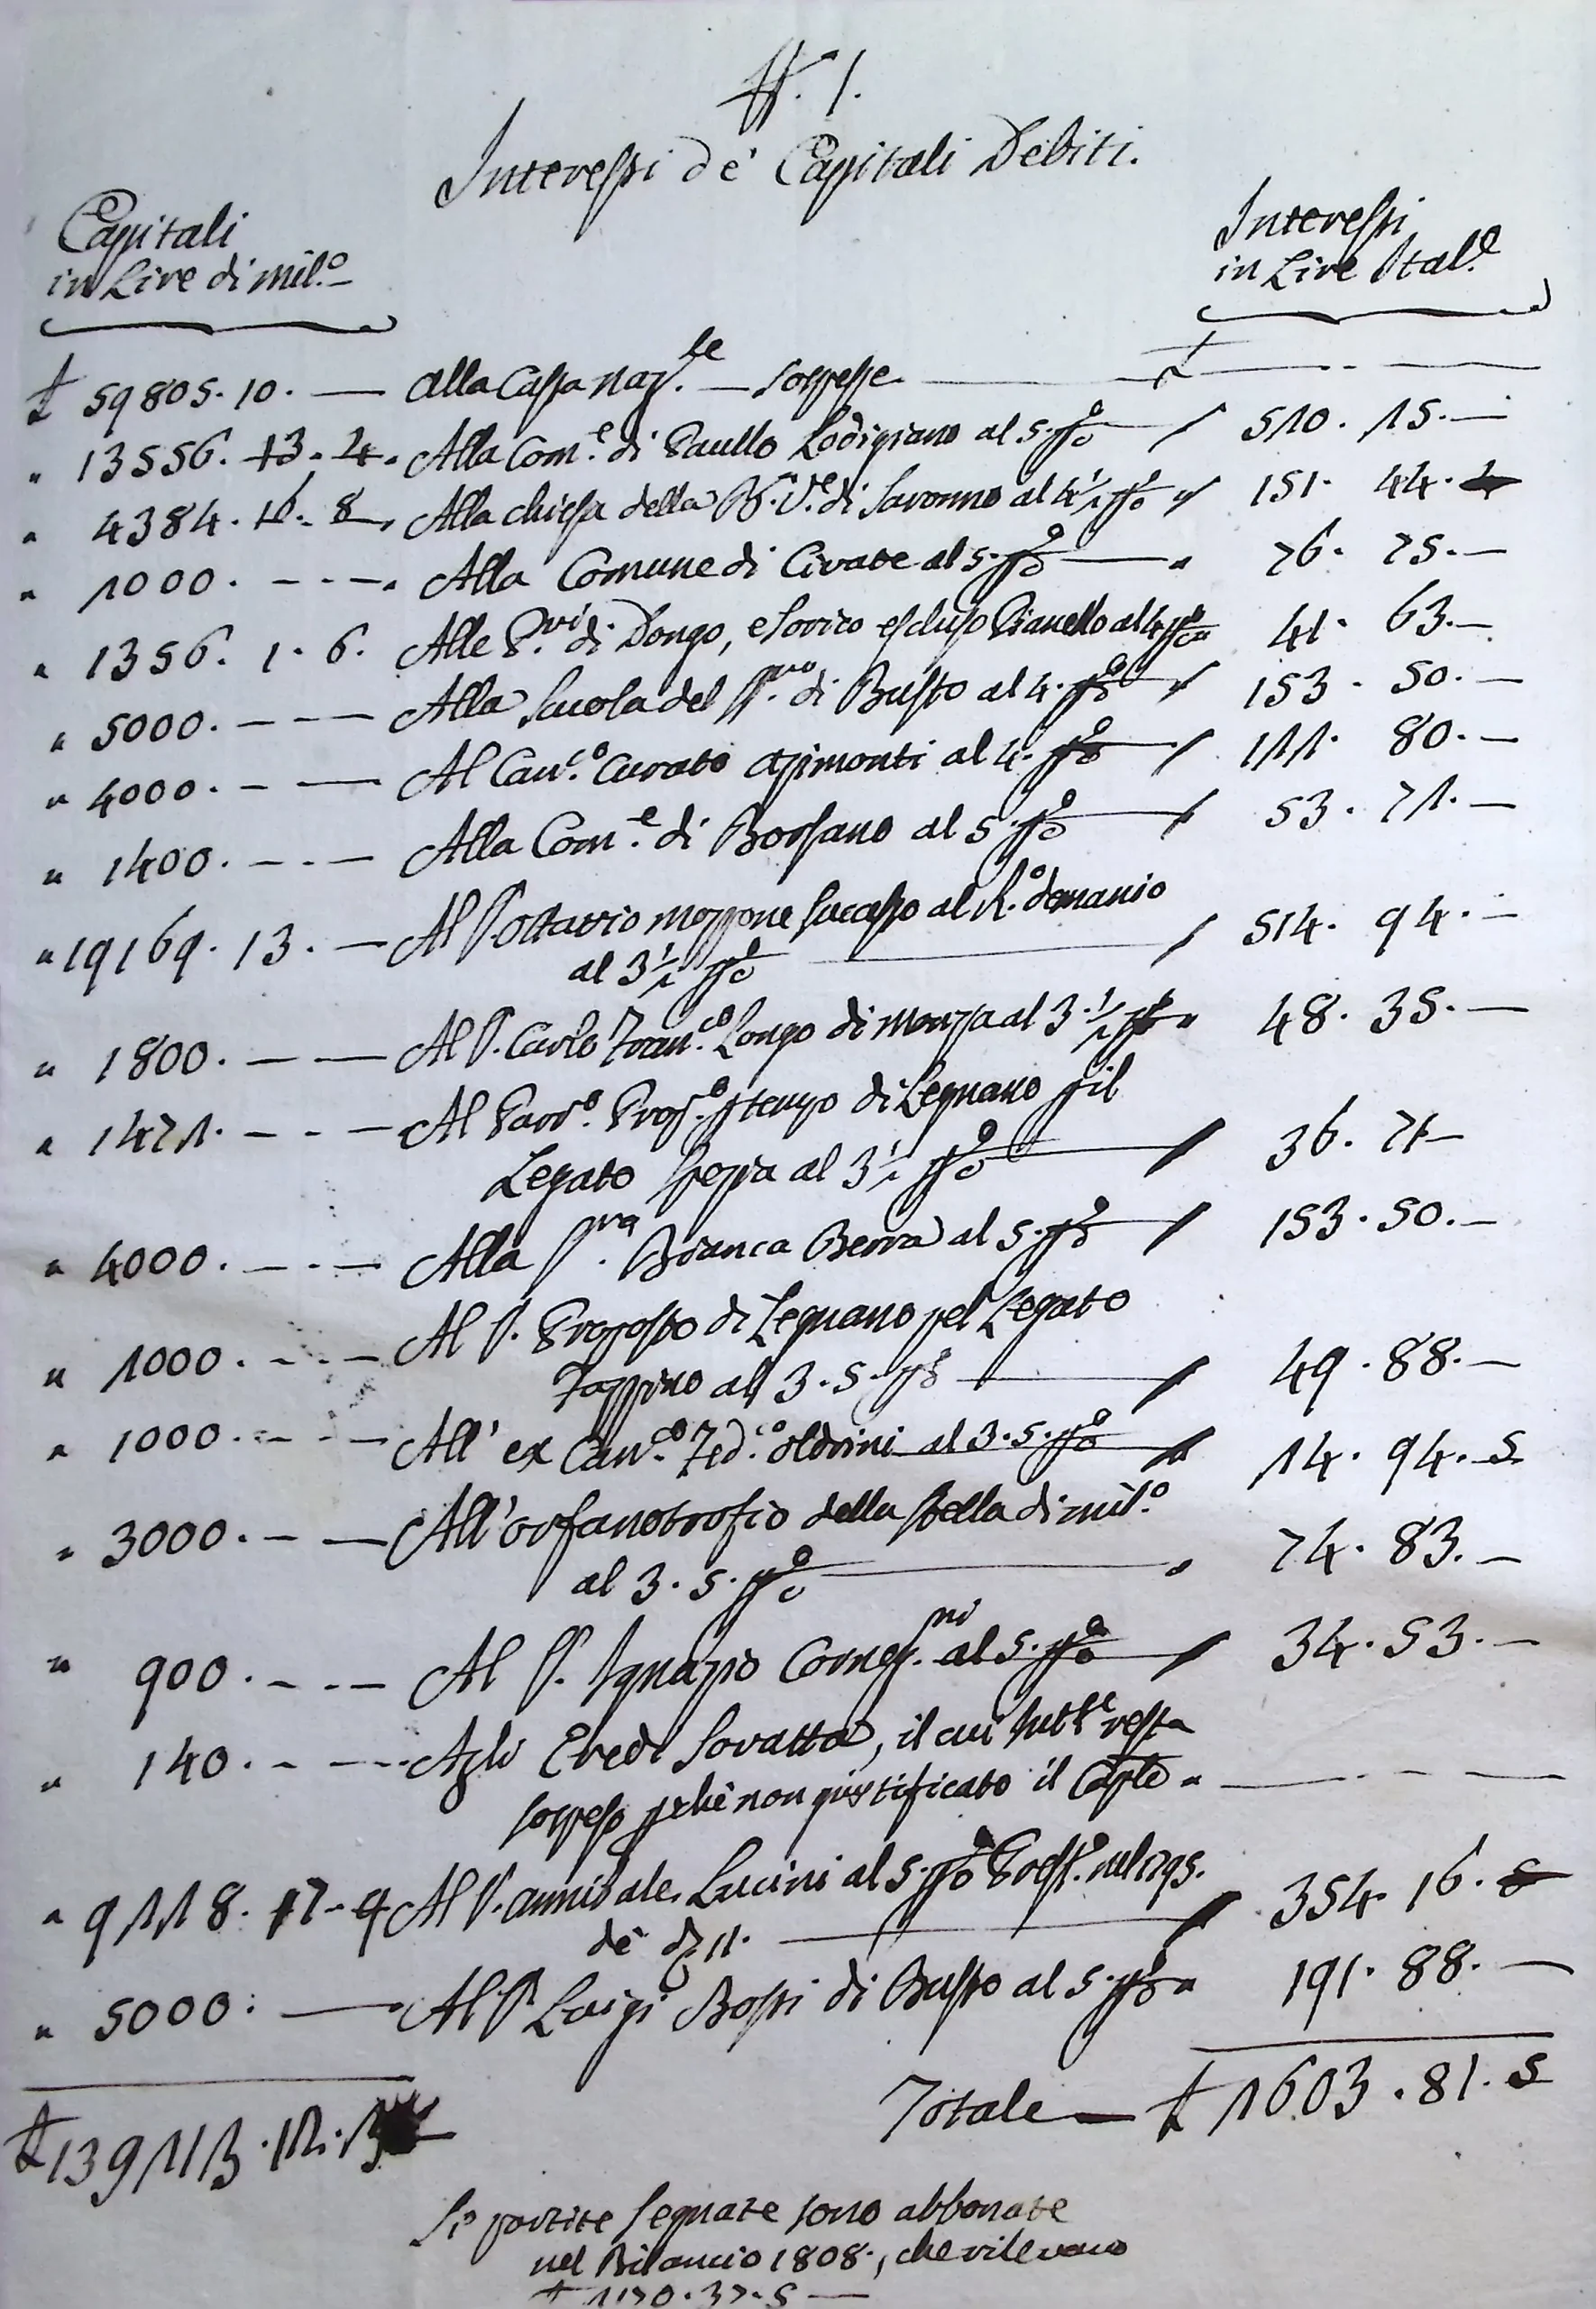 N. 1.
Interessi de' Capitali Debiti.
Capitali
in Lire di Mil.o
Interessi
in Lire Ital.e
£ 59805. 10. — alla Cassa Naz.le — sospese — £ — .. —
" 13556. 13. 4. Alla Com.e di Paullo Lodigiano al 5. p%o " 510. 15. —
" 4384. 16. 8. Alla chiesa della B. V.e di Saronno al 4 1/2 p%o " 151. 44.
" 1000. - - - Alla Comune di Civate al 5. p%o — " 76. 75. —
" 1356. 1. 6. Alle di Dongo, e Sorico escluso Pianello al 4 p%o " 41. 63. —
" 5000. - - - Alla Scuola del S. di Busto al 4. p%o " 153. 50. —
" 4000. - — Al Can.co Curato Azimonti al 4. p%o " 111. 80. —
" 1400. - . - Alla Com.e di Borsano al 5. p%o " 53. 71. —
" 19169. 13. — Al S. Ottavio Mozzone sucesso al R.o demanio
al 3 1/2 p%o — " 514. 94. —
" 1800. — — Al S. Carlo Fran.co Longo di Monza al 3. 1/2 p%o " 48. 35. —
" 1471. - . - Al Parr.o Prop.o p tempo di Legnano p il
Legato Spezia al 3 1/2 p%o — " 36. 71 —
" 4000. - . - Alla S.ra Bianca Berra al 5. p%o " 153. 50. —
" 1000. - . - Al S. Proposto di Legnano pel Legato
al 3. 5. p%o — " 49. 88. —
" 1000. - - - All' ex Can.co Fed.co Oldrini al 3. 5. p%o " 14. 94. 5
" 3000. - — All'orfanotrofio della Stella di Mil.o
al 3. 5. p%o — " 74. 83. —
" 900. - . - Al S. Ignazio al 5. p%o " 34. 53. —
" 140. - - - Agli Eredi Soratta, il cui resta
sospeso pchè non giustificato il Caple " — . - —
" 9118. 17. 9 Al S. Annibale Lucini al 5. p%o nel 1795.
de' 11. — " 354. 16.
" 5000. — Al S. Luigi Bossi di Busto al 5. p%o " 191. 88. —
Totale — £ 1603. 81. 5
£ 139113. 12. 3
Le partite segnate sono abbonate
nel Bilancio 1808., che rilevano
£ 1170. 37. 5 —